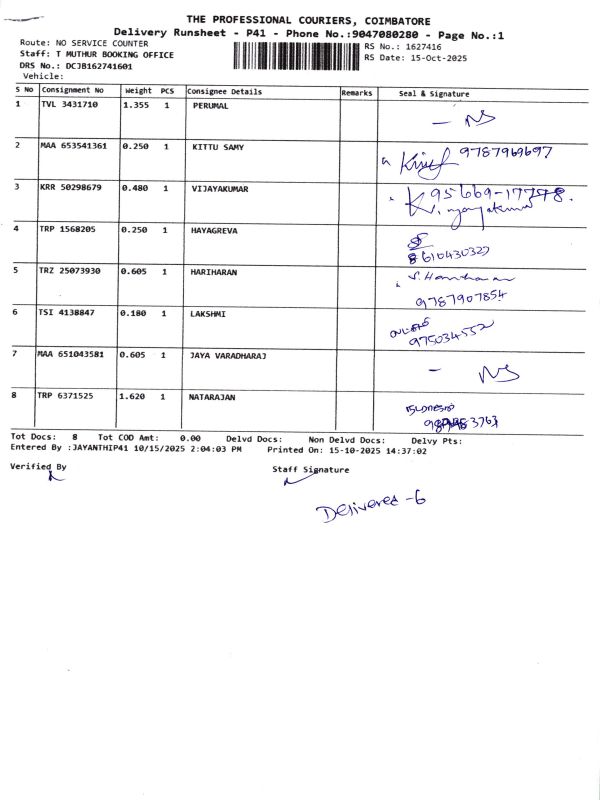 THE PROFESSIONAL COURIERS, COIMBATORE
Delivery Runsheet - P41 - Phone No.:9047080280 - Page No.:1
Route: NO SERVICE COUNTER
RS No.: 1627416
Staff: T MUTHUR BOOKING OFFICE
RS Date: 15-Oct-2025
DRS No.: DCJB162741601
Vehicle:
S No Consignment No Weight PCS Consignee Details Remarks Seal & Signature
1 TVL 3431710 1.355 1 PERUMAL - NS
2 MAA 653541361 0.250 1 KITTU SAMY 9787969697
3 KRR 50298679 0.480 1 VIJAYAKUMAR 95669-17778.
K. Vijayakumar
4 TRP 1568205 0.250 1 HAYAGREVA
8610430327
5 TRZ 25073930 0.605 1 HARIHARAN S. Hariharan
9787907854
6 TSI 4138847 0.180 1 LAKSHMI
975034552
7 MAA 651043581 0.605 1 JAYA VARADHARAJ - NS
8 TRP 6371525 1.620 1 NATARAJAN நடராஜன்
Tot Docs: 8 Tot COD Amt: 0.00 Delvd Docs: Non Delvd Docs: Delvy Pts:
Entered By :JAYANTHIP41 10/15/2025 2:04:03 PM Printed On: 15-10-2025 14:37:02
Verified By Staff Signature
Delivered -6